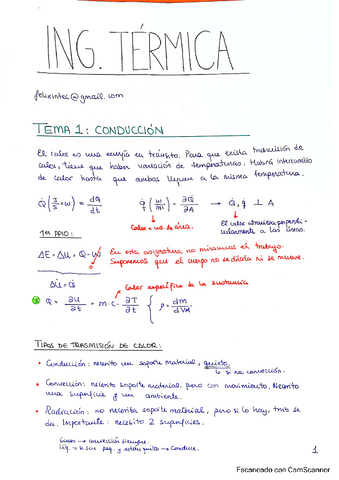 ING. TÉRMICA
felixintec@gmail.com
TEMA 1: CONDUCCIÓN
El calor es una energía en tránsito. Para que exista transmisión de
calor, tiene que haber variación de temperaturas. Habrá intercambio
de calor hasta que ambos lleguen a la misma temperatura.
Q̇ (J/s = w) = dQ/dt q̇ (w/m²) = ∂Q̇/∂A → Q̇, q̇ ⊥ A
Calor x ud. de área.
El calor atraviesa perpendi-
cularmente a las áreas.
1er PPIO:
ΔE = ΔU = Q - W
0
En esta asignatura no miramos el trabajo.
Suponemos que el cuerpo no se dilata ni se mueve.
ΔU = Q
Calor específico de la sustancia
Q̇ = ∂U/∂t = m·c·∂T/∂t { ρ = dm/dV
TIPOS DE TRASMISIÓN DE CALOR:
• Conducción: necesito un soporte material, quieto.
↳ si no, convección.
• Convección: necesito soporte material pero con movimiento. Necesito
una superficie y un ambiente.
• Radiación: no necesita soporte material, pero si lo hay, tmb se
da. Importante: necesito 2 superficies.
Gases → convección siempre.
Líq. → si son peq. y están quietos → Conducc.
1
Escaneado con CamScanner